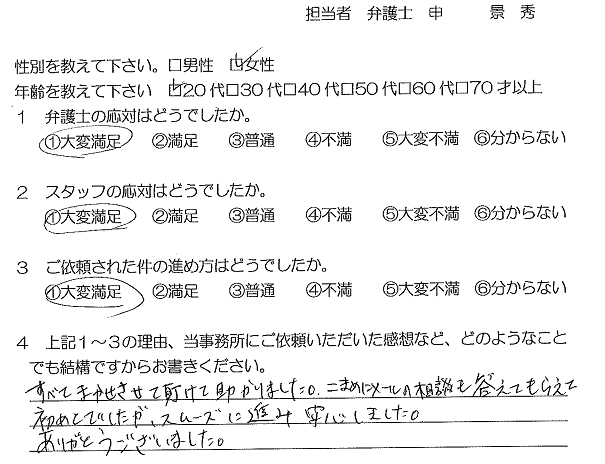 担当者 弁護士 申 景 秀
性別を教えて下さい。□男性 □女性
年齢を教えて下さい □20代□30代□40代□50代□60代□70才以上
1 弁護士の応対はどうでしたか。
①大変満足 ②満足 ③普通 ④不満 ⑤大変不満 ⑥分からない
2 スタッフの応対はどうでしたか。
①大変満足 ②満足 ③普通 ④不満 ⑤大変不満 ⑥分からない
3 ご依頼された件の進め方はどうでしたか。
①大変満足 ②満足 ③普通 ④不満 ⑤大変不満 ⑥分からない
4 上記1~3の理由、当事務所にご依頼いただいた感想など、どのようなこと
でも結構ですからお書きください。
すべてまかせさせて頂けて助かりました。こまめにメールの相談も答えてもらえて
初めてでしたが、スムーズに進み安心しました。
ありがとうございました。